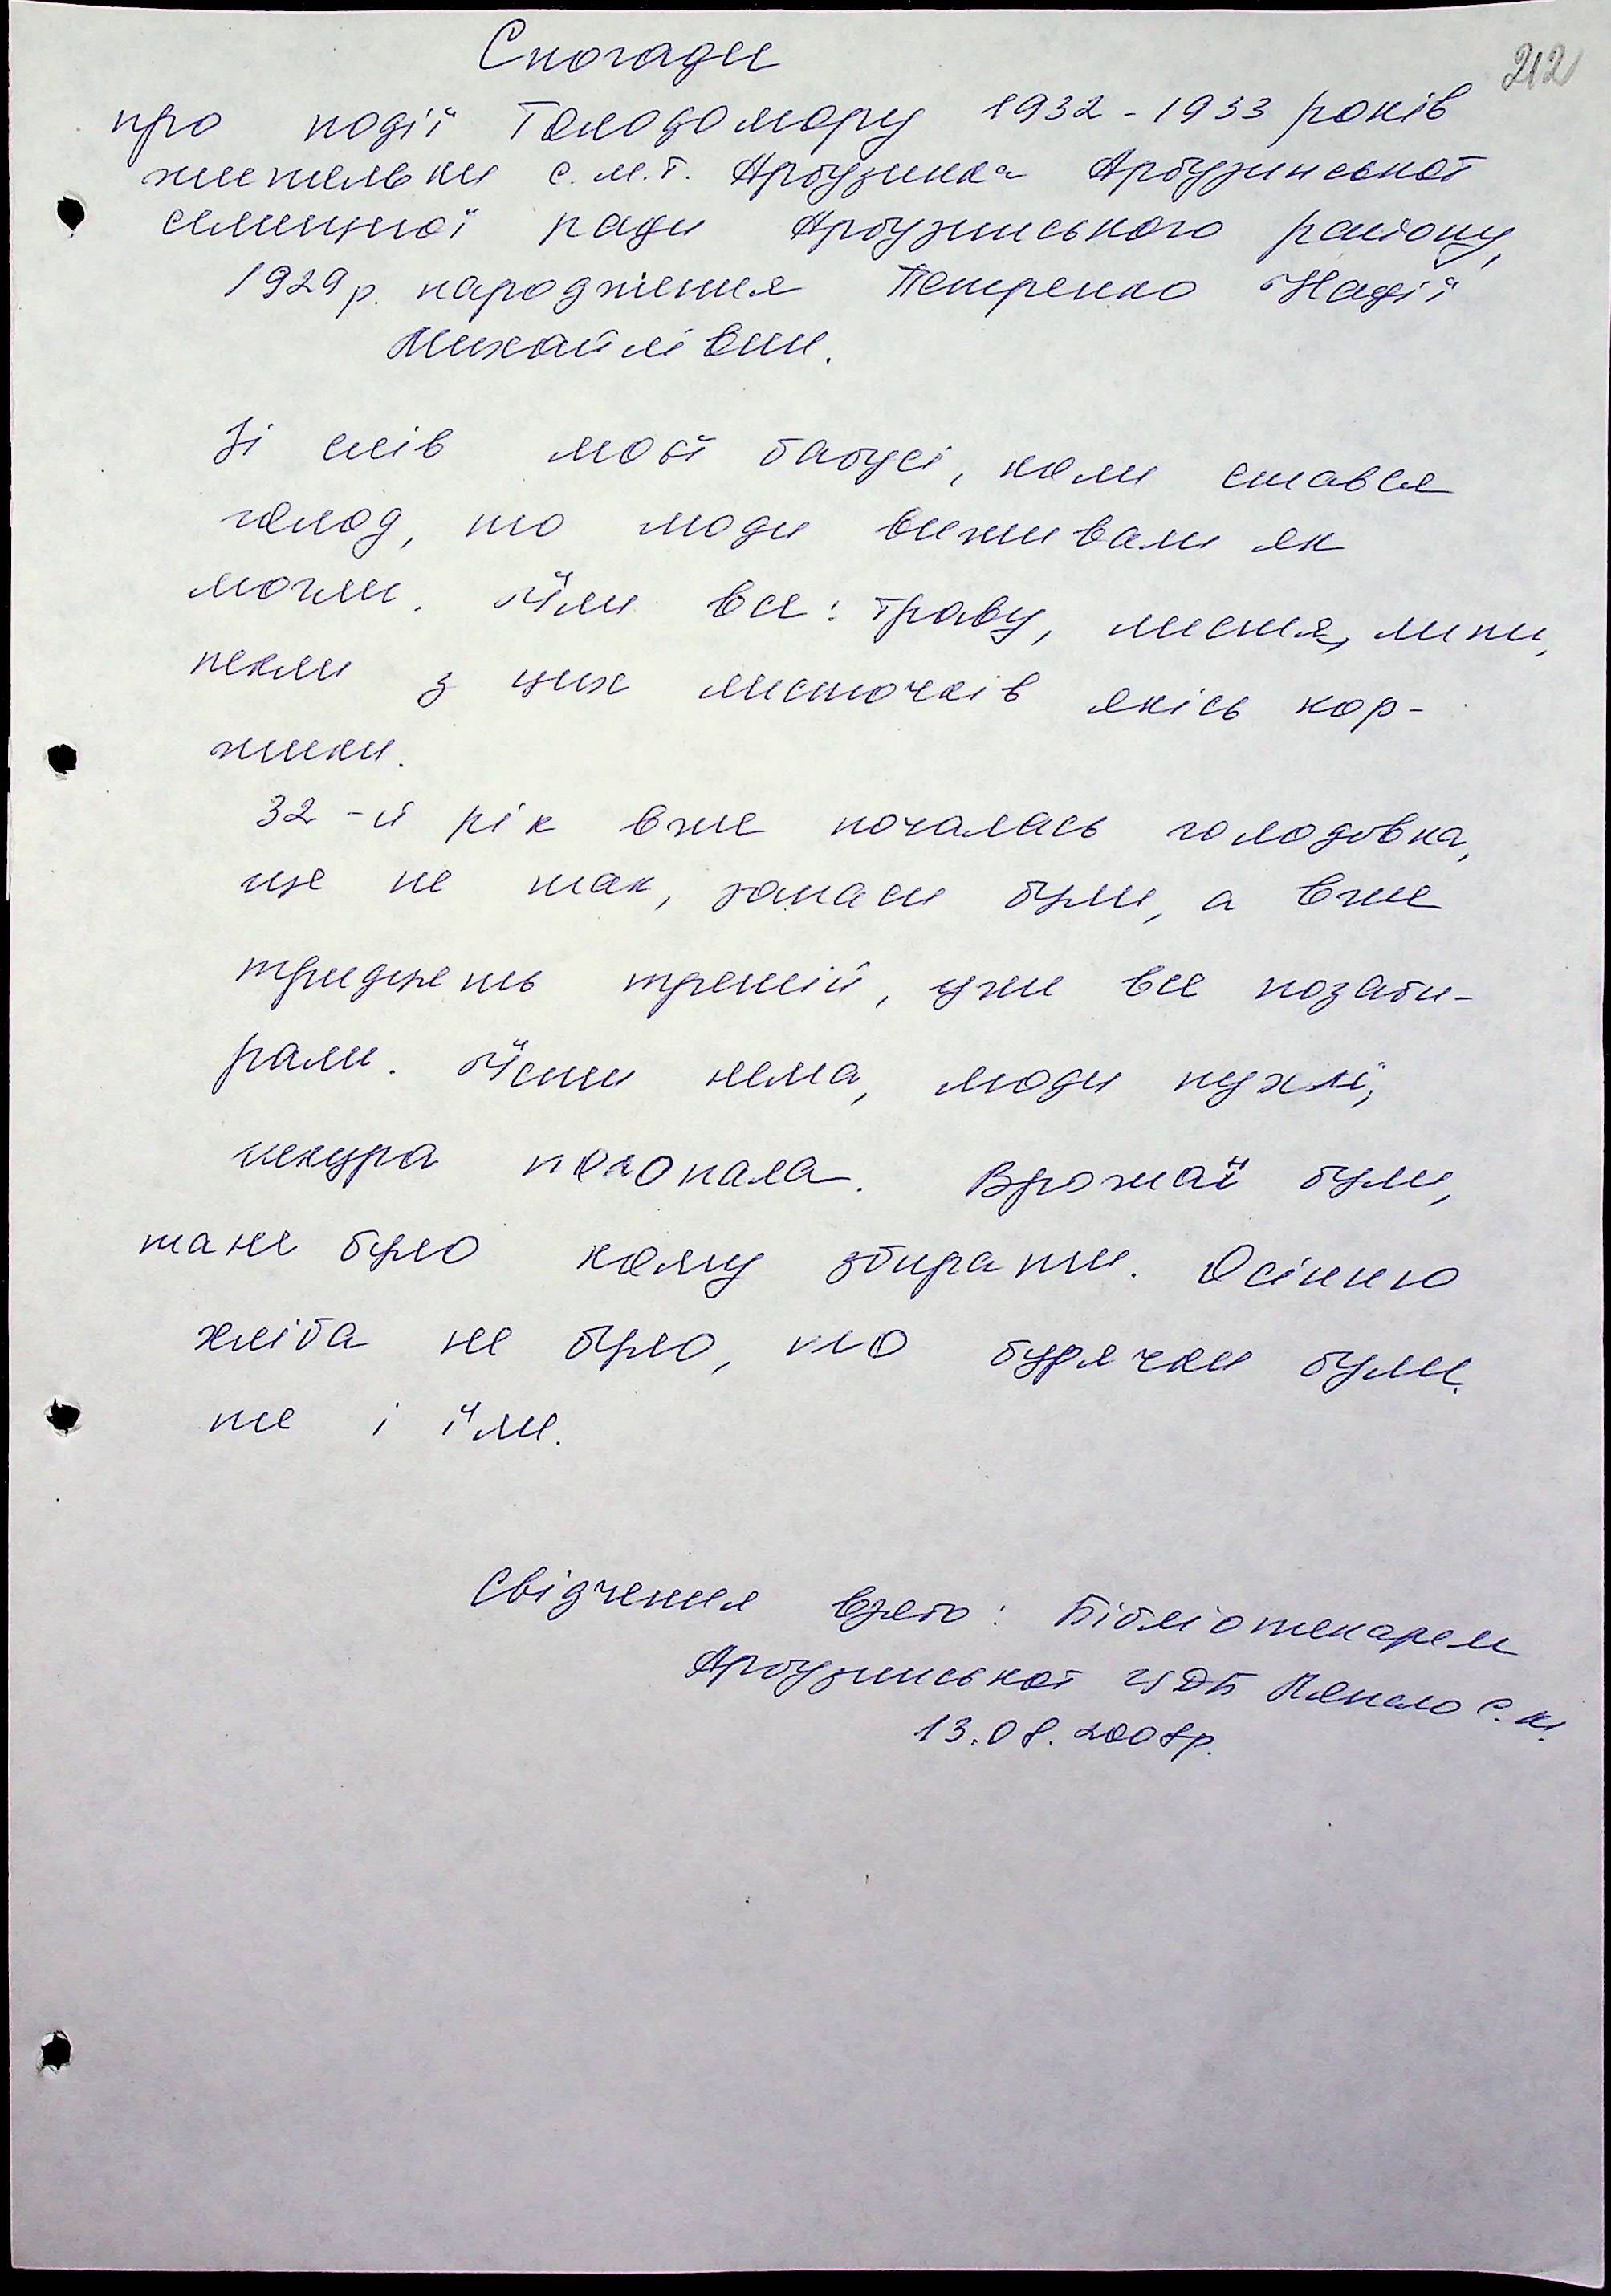 212
Спогади
про події Голодомору 1932-1933 років
жительки с.м.т. Арбузинка Арбузинської
селищної ради Арбузинського району,
1929 р. народження Петренко Надії
Михайлівни.
Зі слів моєї бабусі, коли стався
голод, то люди виживали як
могли. Їли все: траву, листя, липи,
пекли з цих листочків якісь кор-
жики.
32-й рік вже почалась голодовка,
ще не так, запаси були, а вже
тридцять третій, уже все позаби-
рали. Їсти нема, люди пухлі,
шкура полопала. Врожаї були,
та не було кому збирати. Осінню
хліба не було, що бурячки були
те і їли.
Свідчення взято: Бібліотекарем
Арбузинської ЦДБ С.М.
13.08.2008р.